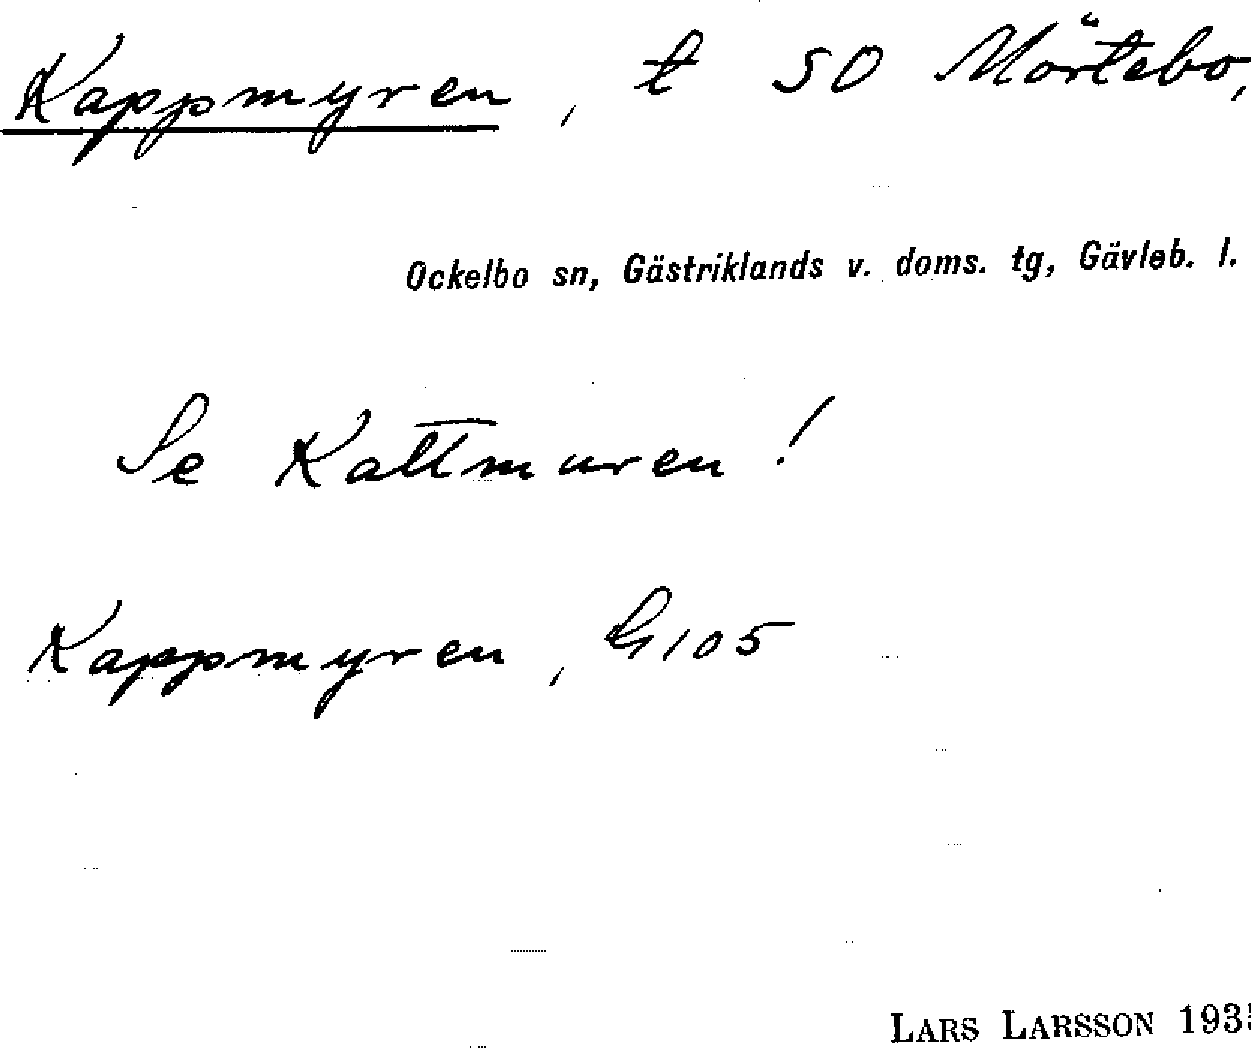 Kappmyren, t SO Mörtebo,
Ockelbo sn, Gästriklands v. doms. tg, Gävleb. l.
Se Kattmuren!
Kappmyren, G105
LARS LARSSON 193